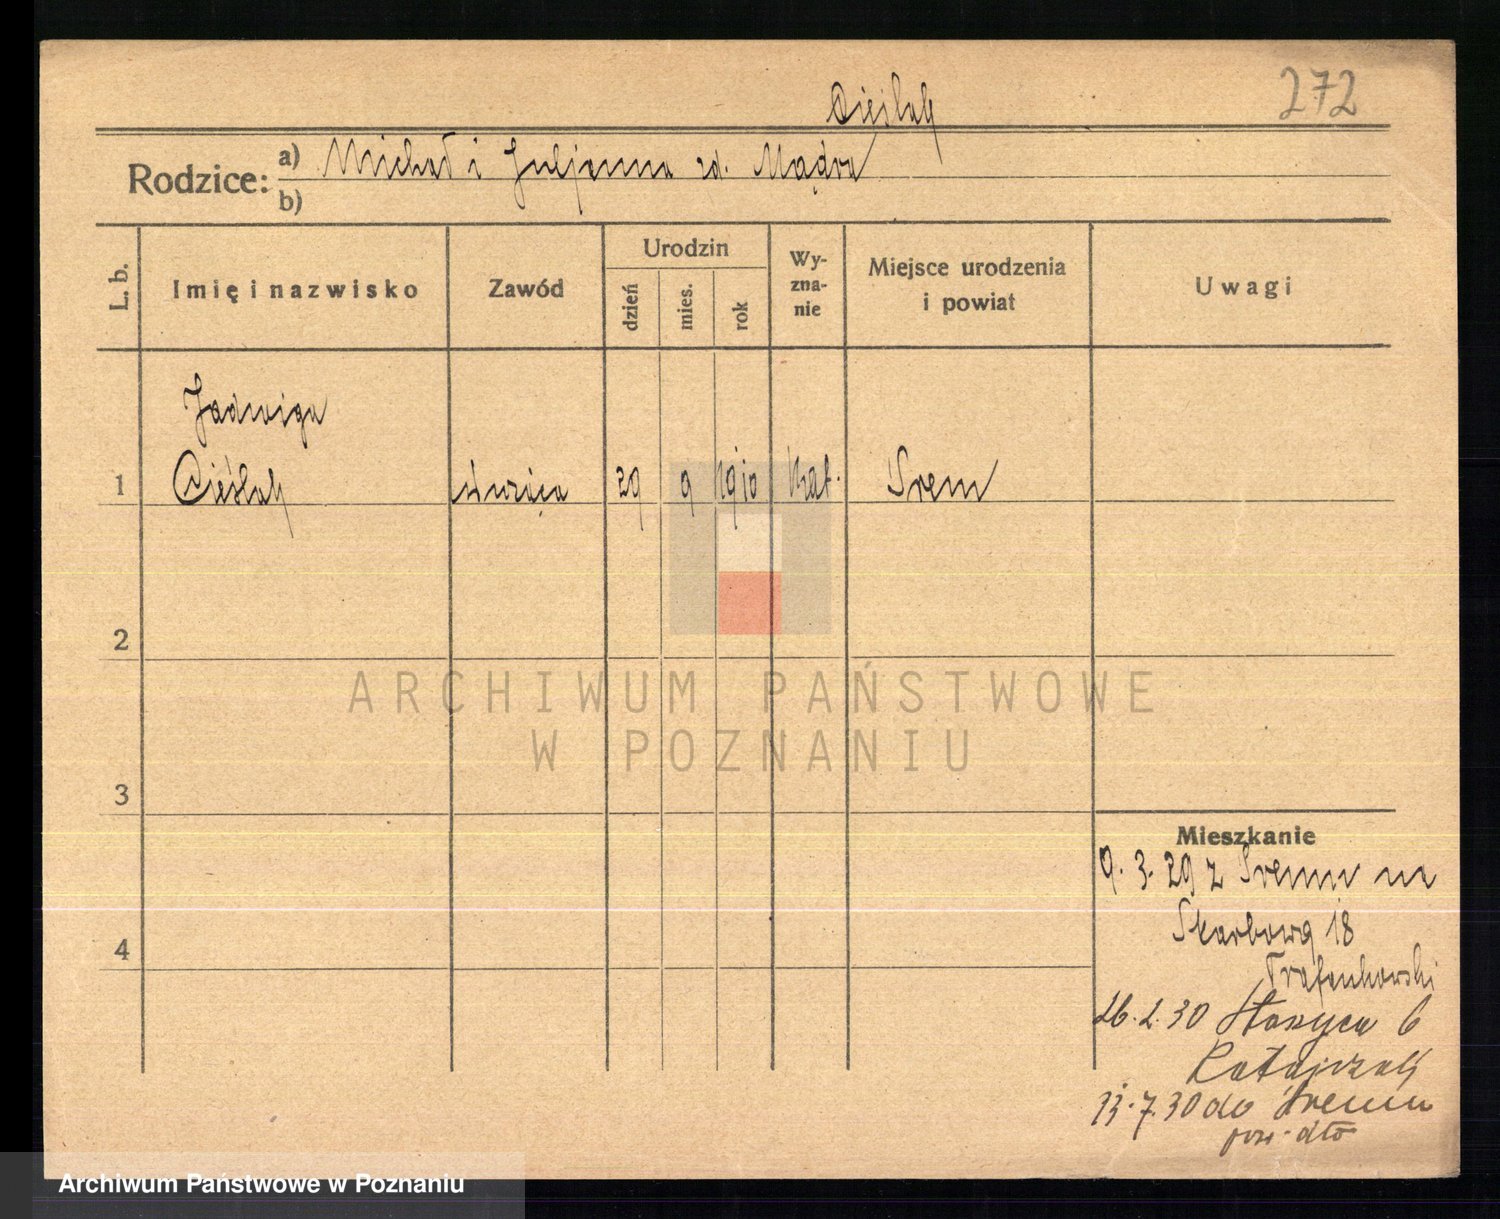 272
Cieślak
Rodzice: a) Michał i Juljanna zd. Mądra
b)
L. b.
Imię i nazwisko
Zawód
Urodzin
dzień
mies.
rok
Wy-
zna-
nie
Miejsce urodzenia
i powiat
Uwagi
Jadwiga
1 Cieślak służąca 29 9 1910 kat. Śrem
2
ARCHIWUM PAŃSTWOWE
W POZNANIU
3
Mieszkanie
9. 3. 29 z Śremu na
Skarbową 18
4
26. 2. 30 Staszyca 6
Ratajczak
7. 30 do Śremu
Archiwum Państwowe w Poznaniu